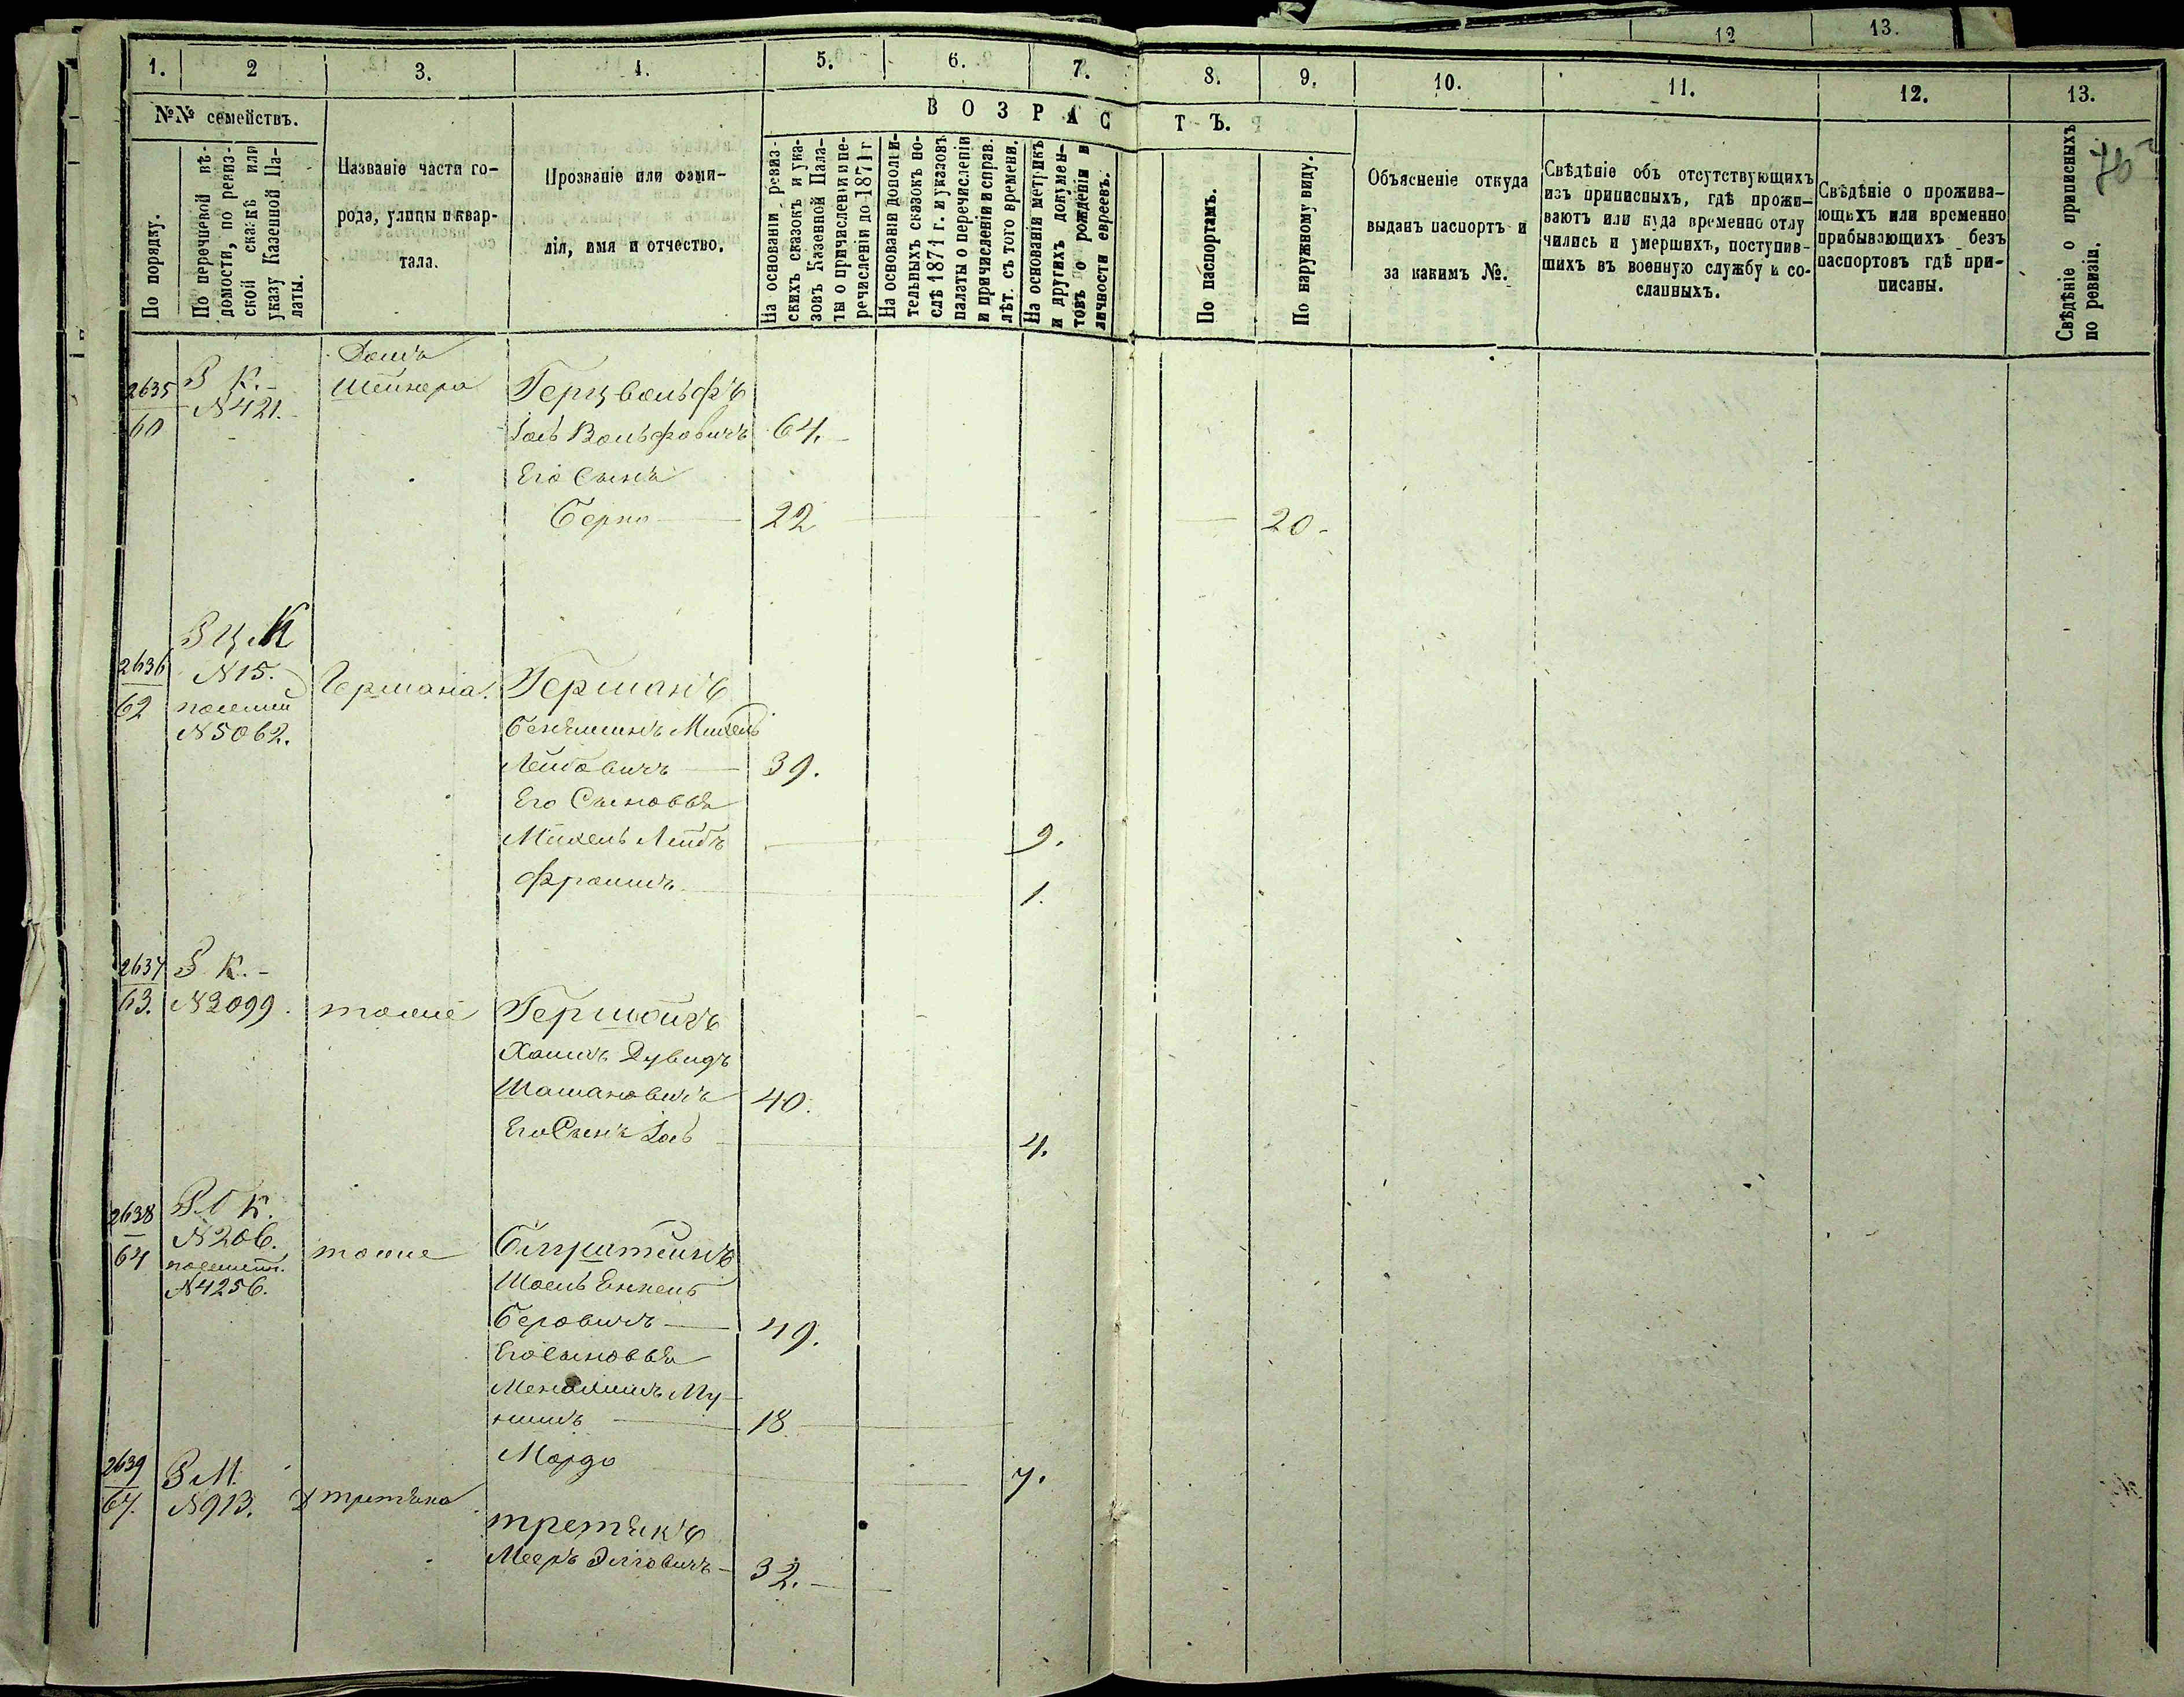 12 13.
1. 2 3. 4. 5. 6. 7. 8. 9. 10. 11. 12. 13.
№№ семействъ.
По порядку.
По перечневой вѣ-
домости, по ревиз-
ской сказкѣ или
указу Казенной Па-
латы.
Названіе части го-
рода, улицы и квар-
тала.
Прозваніе или фами-
лія, имя и отчество.
ВОЗРАСТЪ.
На основаніи ревиз-
скихъ сказокъ и ука-
зовъ Казенной Пала-
ты о причисленіи и пе-
речисленіи до 1871 г
На основаніи дополни-
тельныхъ сказокъ по-
слѣ 1871 г. и указовъ
палаты о перечисленіи
и причисленіи и справ.
лѣт. съ того времени.
На основаніи метрикъ
и другихъ докумен-
товъ о рожденіи и
личности евреевъ.
По паспортамъ.
По наружному виду.
Объясненіе откуда
выданъ паспортъ и
за какимъ №.
Свѣдѣніе объ отсутствующихъ
изъ приписныхъ, гдѣ прожи-
ваютъ или куда временно отлу
чились и умершихъ, поступив-
шихъ въ военную службу и со-
сланныхъ.
Свѣдѣніе о прожива-
ющихъ или временно
прибывающихъ безъ
паспортовъ гдѣ при-
писаны.
Свѣдѣніе о приписныхъ
по ревизіи.
Домъ
2635 К.- Шейнера Герцвольфъ
60 N421.
Іось Вольфовичъ 64.
Его Сынъ
Берко 22 20.
К
2636 N15. Германа. Германъ
62 N5062.
Беняминъ Михель
Лейбовичъ 39.
Его Сыновья
Михель Лейбъ 9.
Фроимъ 1.
2637 К.-
63. N2099. тоже Гершойгъ
Хаимъ Дувидъ
Шашановичъ 40.
Его Сынъ Іось 4.
2638 К.
N206.
64 тоже
N4256. Шоель Енкель
Беровичъ 49.
Его сыновья
Менахимъ Му-
нишъ 18
Мордо 7.
2639 М.
67. N913. Д Третяка
третякъ
Мееръ Эллговичъ 32.